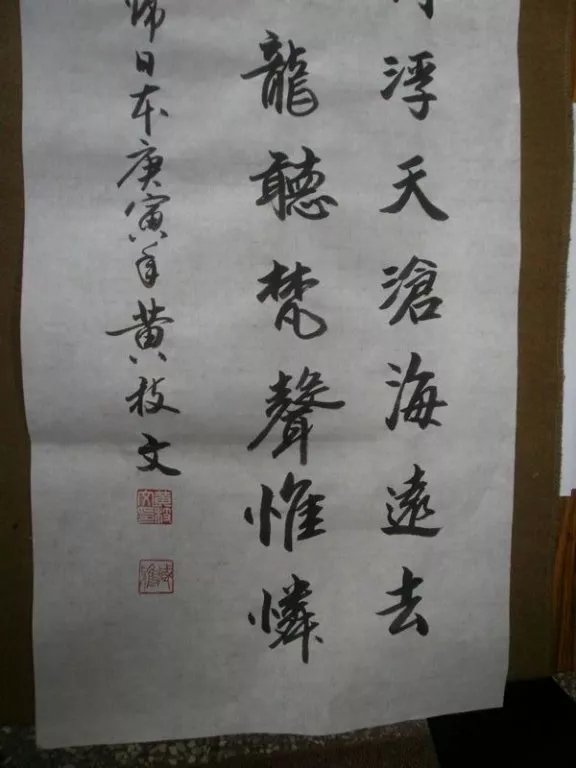 行浮天滄海遠去
龍聽梵聲惟憐
歸日本庚寅年黃枝文
黃枝文印